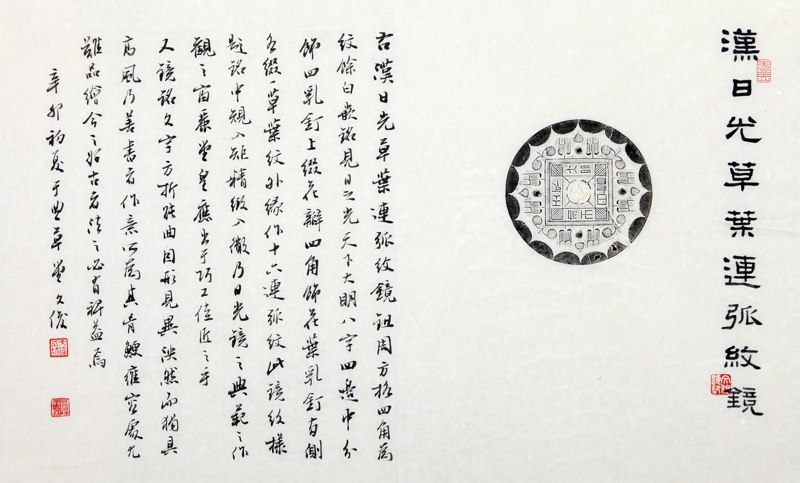 漢日光草葉連弧紋鏡
右漢日光草葉連弧紋鏡鈕周方格四角為
紋餘白嵌銘見日之光天下大明八字四邊中分
飾四乳釘上綴花瓣四角飾花葉乳釘旁側
各綴一草葉紋外緣作十六連弧紋此鏡紋樣
題銘中規入矩精緻入微乃日光鏡之典範之作
觀之富麗堂皇應出于巧工佳匠之手
又鏡銘文字方折硬曲因形見異泱然而獨具
高風乃善書者作意
難品繪今之好古者法之必有裨益焉
辛卯初夏于草堂文俊